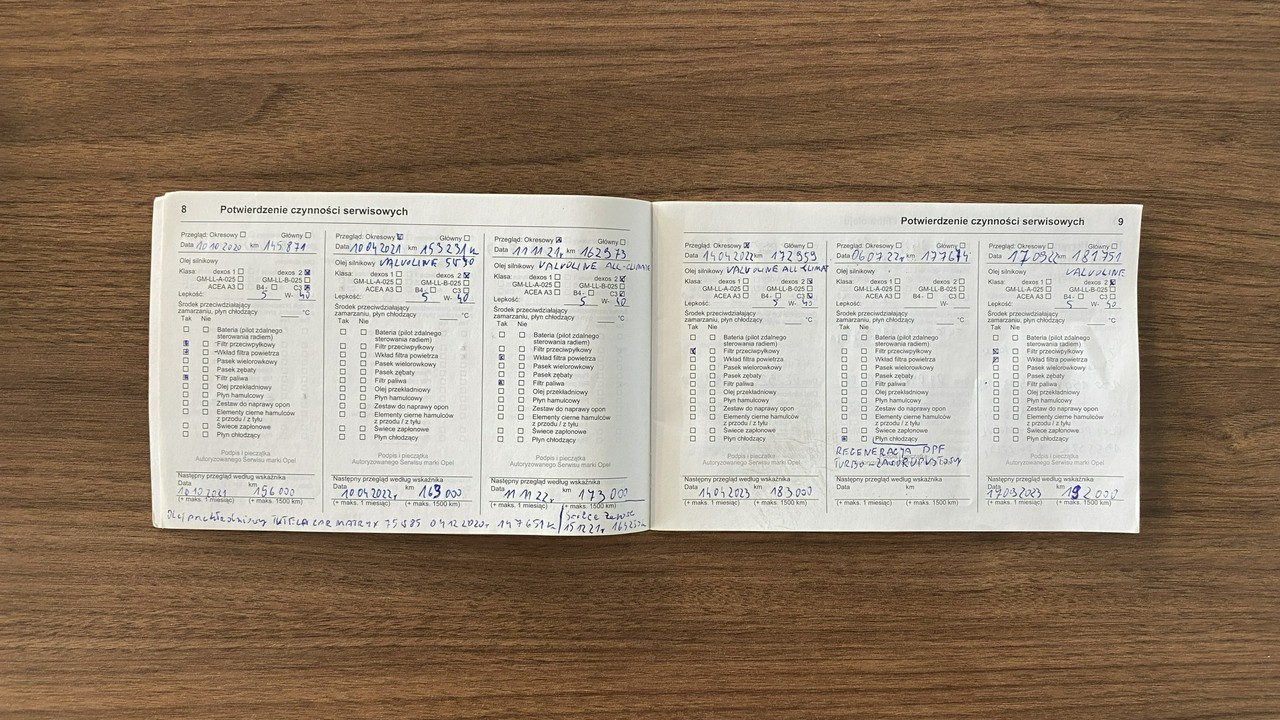 8 Potwierdzenie czynności serwisowych
Przegląd: Okresowy Główny
Data 10 10 2020 km 145 871
Olej silnikowy
Klasa: dexos 1 dexos 2
GM-LL-A-025 GM-LL-B-025
ACEA A3 B4- C3
Lepkość: 5 W- 40
Środek przeciwdziałający
zamarzaniu, płyn chłodzący °C
Tak Nie
Bateria (pilot zdalnego
sterowania radiem)
Filtr przeciwpyłkowy
Wkład filtra powietrza
Pasek wielorowkowy
Pasek zębaty
Filtr paliwa
Olej przekładniowy
Płyn hamulcowy
Zestaw do naprawy opon
Elementy cierne hamulców
z przodu / z tyłu
Świece zapłonowe
Płyn chłodzący
Podpis i pieczątka
Autoryzowanego Serwisu marki Opel
Następny przegląd według wskaźnika
Data km
10.10.2021 156 000
(+ maks. 1 miesiąc) (+ maks. 1500 km)
Przegląd: Okresowy Główny
Data 10 04 2021 km
Olej silnikowy VALVOLINE
Klasa: dexos 1 dexos 2
GM-LL-A-025 GM-LL-B-025
ACEA A3 B4- C3
Lepkość: 5 W- 40
Środek przeciwdziałający
zamarzaniu, płyn chłodzący °C
Tak Nie
Bateria (pilot zdalnego
sterowania radiem)
Filtr przeciwpyłkowy
Wkład filtra powietrza
Pasek wielorowkowy
Pasek zębaty
Filtr paliwa
Olej przekładniowy
Płyn hamulcowy
Zestaw do naprawy opon
Elementy cierne hamulców
z przodu / z tyłu
Świece zapłonowe
Płyn chłodzący
Podpis i pieczątka
Autoryzowanego Serwisu marki Opel
Następny przegląd według wskaźnika
Data km
10.04.2022r 163 000
(+ maks. 1 miesiąc) (+ maks. 1500 km)
Przegląd: Okresowy Główny
Data 11 11 21r km 162 973
Olej silnikowy VALVOLINE ALL-CLIMATE
Klasa: dexos 1 dexos 2
GM-LL-A-025 GM-LL-B-025
ACEA A3 B4- C3
Lepkość: 5 W- 40
Środek przeciwdziałający
zamarzaniu, płyn chłodzący °C
Tak Nie
Bateria (pilot zdalnego
sterowania radiem)
Filtr przeciwpyłkowy
Wkład filtra powietrza
Pasek wielorowkowy
Pasek zębaty
Filtr paliwa
Olej przekładniowy
Płyn hamulcowy
Zestaw do naprawy opon
Elementy cierne hamulców
z przodu / z tyłu
Świece zapłonowe
Płyn chłodzący
Podpis i pieczątka
Autoryzowanego Serwisu marki Opel
Następny przegląd według wskaźnika
Data km
11 11 22r 173 000
(+ maks. 1 miesiąc) (+ maks. 1500 km)
Olej przekładniowy TUTELA CAR MATRYX 75W85 04.12.2020r 147 651 km
15 12 21r
Potwierdzenie czynności serwisowych 9
Przegląd: Okresowy Główny
Data 14 04 2022 km 172 959
Olej silnikowy VALVOLINE ALL CLIMAT
Klasa: dexos 1 dexos 2
GM-LL-A-025 GM-LL-B-025
ACEA A3 B4- C3
Lepkość: 5 W- 40
Środek przeciwdziałający
zamarzaniu, płyn chłodzący °C
Tak Nie
Bateria (pilot zdalnego
sterowania radiem)
Filtr przeciwpyłkowy
Wkład filtra powietrza
Pasek wielorowkowy
Pasek zębaty
Filtr paliwa
Olej przekładniowy
Płyn hamulcowy
Zestaw do naprawy opon
Elementy cierne hamulców
z przodu / z tyłu
Świece zapłonowe
Płyn chłodzący
Podpis i pieczątka
Autoryzowanego Serwisu marki Opel
Następny przegląd według wskaźnika
Data km
14 04 2023 183 000
(+ maks. 1 miesiąc) (+ maks. 1500 km)
Przegląd: Okresowy Główny
Data 06.07.22r km 177674
Olej silnikowy
Klasa: dexos 1 dexos 2
GM-LL-A-025 GM-LL-B-025
ACEA A3 B4- C3
Lepkość: W-
Środek przeciwdziałający
zamarzaniu, płyn chłodzący °C
Tak Nie
Bateria (pilot zdalnego
sterowania radiem)
Filtr przeciwpyłkowy
Wkład filtra powietrza
Pasek wielorowkowy
Pasek zębaty
Filtr paliwa
Olej przekładniowy
Płyn hamulcowy
Zestaw do naprawy opon
Elementy cierne hamulców
z przodu / z tyłu
Świece zapłonowe
Płyn chłodzący
REGENERACJA DPF
TURBO
Następny przegląd według wskaźnika
Data km
(+ maks. 1 miesiąc) (+ maks. 1500 km)
Przegląd: Okresowy Główny
Data km 181751
Olej silnikowy VALVOLINE
Klasa: dexos 1 dexos 2
GM-LL-A-025 GM-LL-B-025
ACEA A3 B4- C3
Lepkość: 5 W- 40
Środek przeciwdziałający
zamarzaniu, płyn chłodzący °C
Tak Nie
Bateria (pilot zdalnego
sterowania radiem)
Filtr przeciwpyłkowy
Wkład filtra powietrza
Pasek wielorowkowy
Pasek zębaty
Filtr paliwa
Olej przekładniowy
Płyn hamulcowy
Zestaw do naprawy opon
Elementy cierne hamulców
z przodu / z tyłu
Świece zapłonowe
Płyn chłodzący
Podpis i pieczątka
Autoryzowanego Serwisu marki Opel
Następny przegląd według wskaźnika
Data km
17 09 2023 192 000
(+ maks. 1 miesiąc) (+ maks. 1500 km)